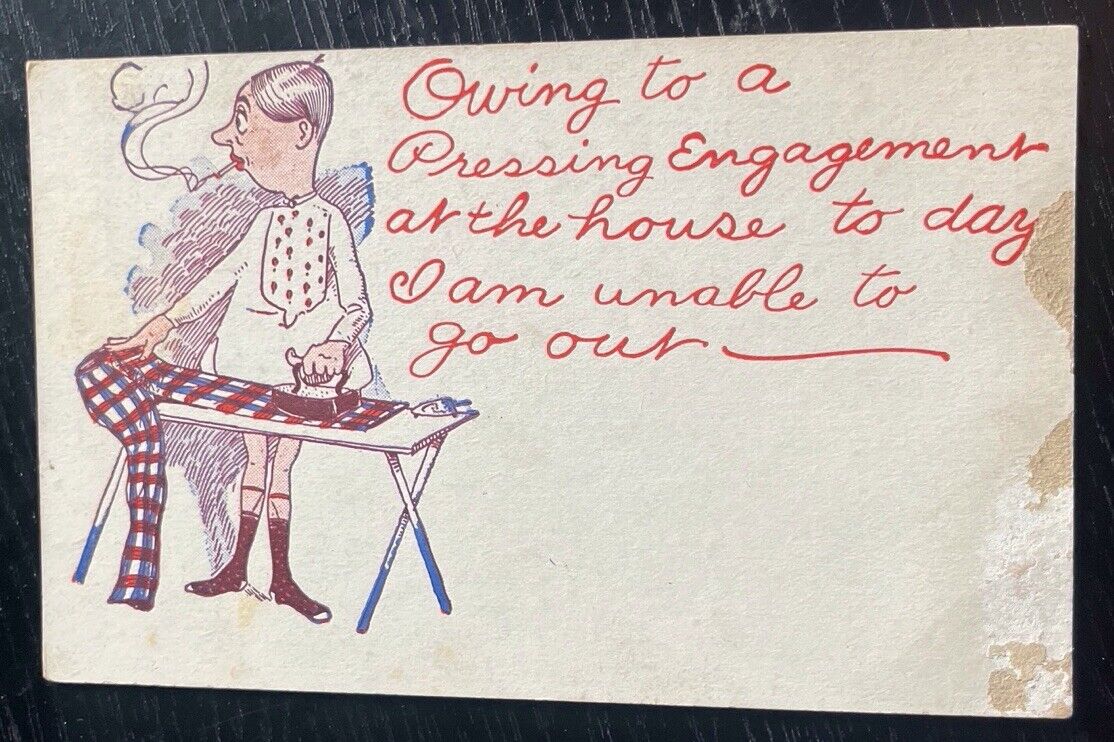 Owing to a
Pressing Engagement
at the house to day
I am unable to
go out